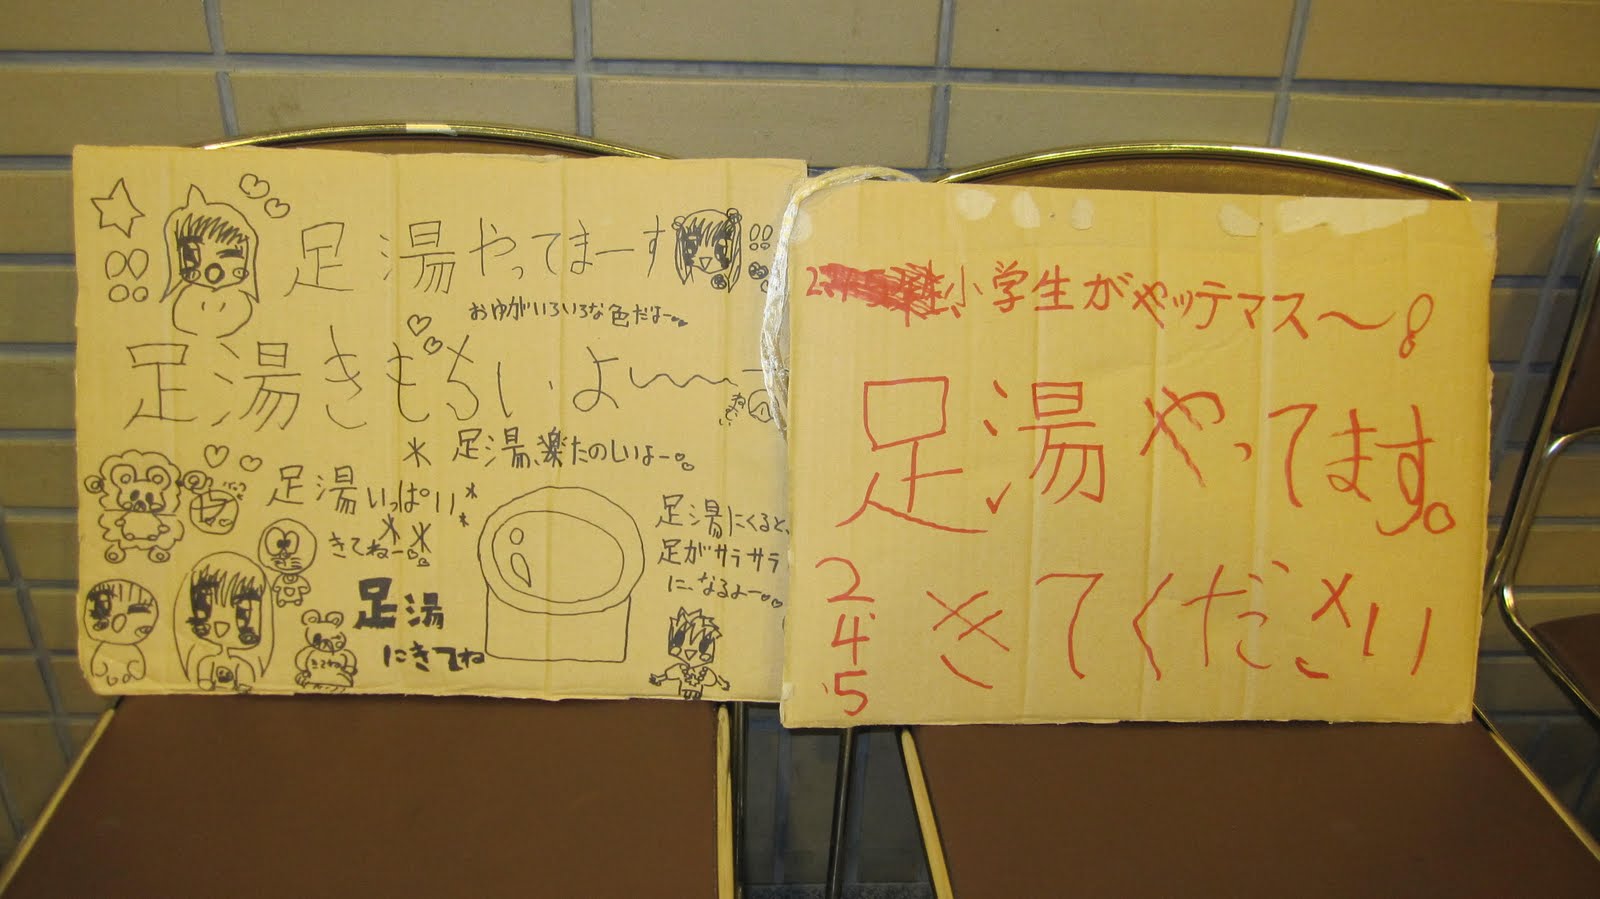 足湯やってまーす
おゆがいろいろな色だよー
足湯きもちいよ〜〜
＊足湯、楽たのしいよー。
足湯いっぱい
きてねー
足湯
にきてね
足湯にくると、
足がサラサラ
に、なるよー
きてね
小学生がやッテマス〜!
足湯やってます。
2
4
5
きてください